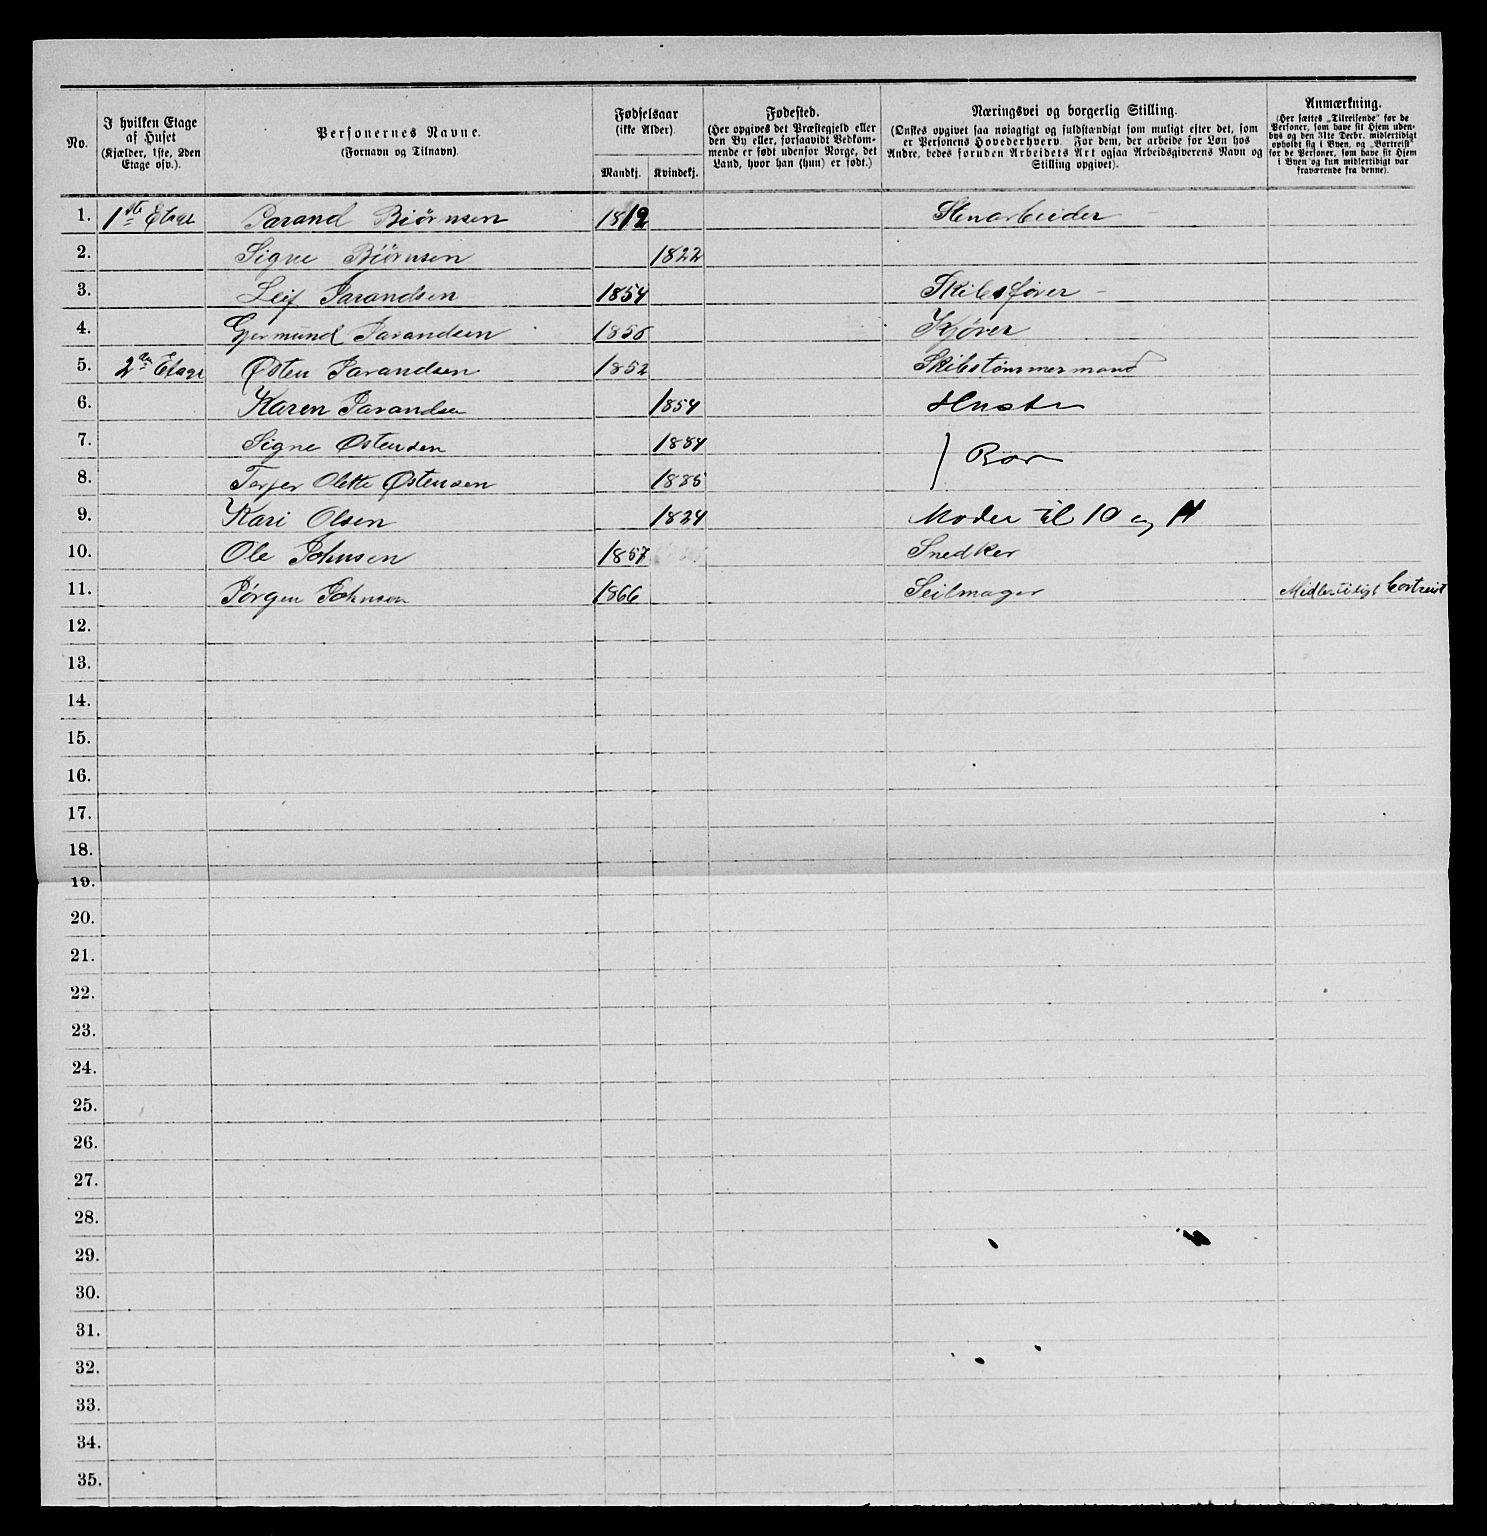 No.
I hvilken Etage af Huset (Kjælder, 1ste, 2den Etage osv.).
Personernes Navne. (Fornavn og Tilnavn)
Fødselsaar (ikke Alder). Mandkj. Kvindekj.
Fødested. (Her opgives det Præstegjeld eller den By eller, forsaavidt Vedkommende er født udenfor Norge, det Land, hvor han (hun) er født.)
Næringsvei og borgerlig Stilling. (Ønskes opgivet saa nøiagtigt og fuldstændigt som muligt efter det, som er Personens Hovederhverv. For dem, der arbeide for Løn hos Andre, bedes foruden Arbeidets Art ogsaa Arbeidsgiverens Navn og Stilling opgivet).
Anmærkning. (Her sættes „Tilreisende" for de Personer, som have sit Hjem udenbys og den 31te Decbr. midlertidigt opholdt sig i Byen, og „Bortreist" for de Personer, som have sit Hjem i Byen og kun midlertidigt var fraværende fra denne).
1. 1ste Etage Tarand Biörnsen 1812 Stenarbeider
2. Signe Biörnsen 1822
3. Leif Tarandsen 1854 Skibsfører
4. Gjermund Tarandsen 1856 Kjører
5. 2den Etage Østen Tarandsen 1852 Skibstømmermand
6. Karen Tarandsen 1854 Hustr
7. Signe Østensen 1884 } Barn
8. Terjer Olette Østensen 1885
9. Kari Olsen 1824 Moder til 10 og 11
10. Ole Johnsen 1857 Snedker
11. Jörgen Johnsen 1866 Seilmager Midlertidigt bortreist
12.
13.
14.
15.
16.
17.
18.
19.
20.
21.
22.
23.
24.
25.
26.
27.
28.
29.
30.
31.
32.
33.
34.
35.